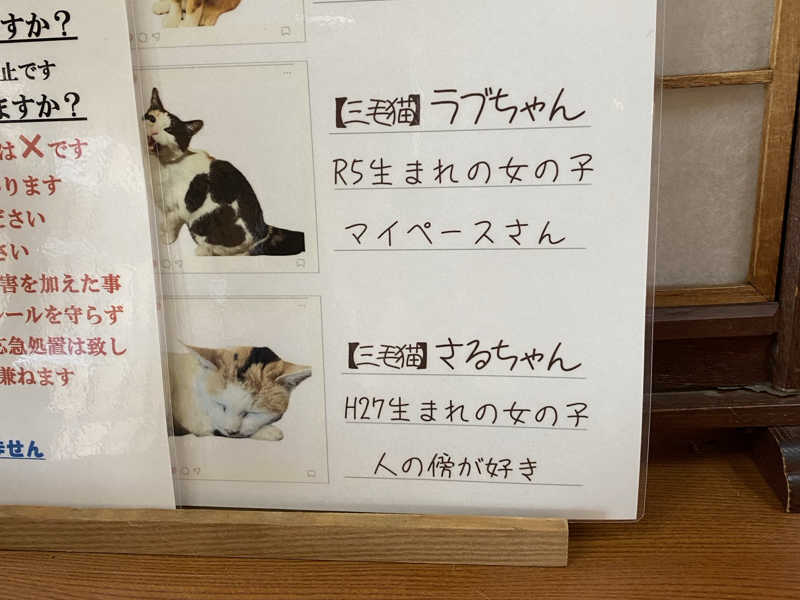 すか？
止です
ますか？
は✕です
ります
ださい
さい
害を加えた事
ルールを守らず
応急処置は致し
兼ねます
ません
【三毛猫】ラブちゃん
R5生まれの女の子
マイペースさん
【三毛猫】さるちゃん
H27生まれの女の子
人の傍が好き